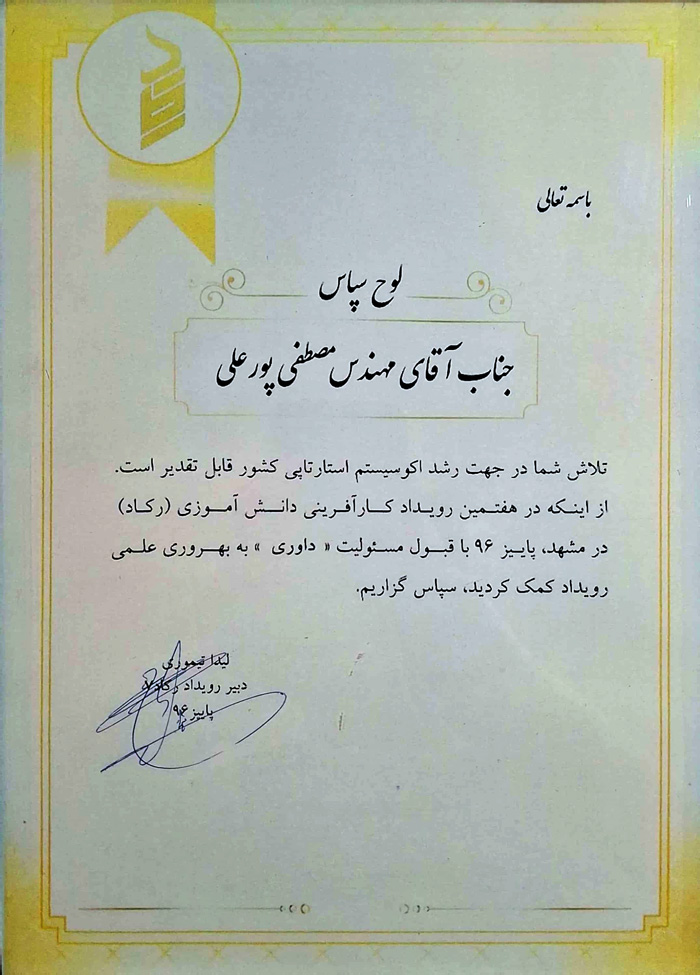 باسمه تعالی
لوح سپاس
جناب آقای مهندس مصطفی پورعلی
تلاش شما در جهت رشد اکوسیستم استارتاپی کشور قابل تقدیر است.
از اینکه در هفتمین رویداد کارآفرینی دانش آموزی (رکاد)
در مشهد، پاییز ۹۶ با قبول مسئولیت « داوری » به بهروری علمی
رویداد کمک کردید، سپاس گزاریم.
لیدا تیموری
دبیر رویداد رکاد ۷
پاییز ۹۶